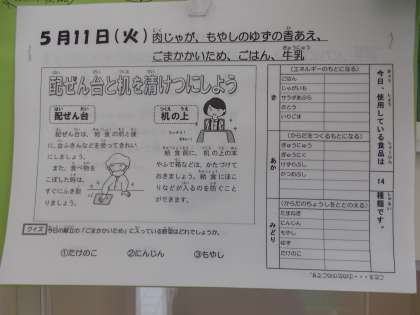 5月11日(火) 肉じゃが、もやしのゆずの香あえ、
ごまかかいため、ごはん、牛乳
配ぜん台と机を清けつにしよう
配ぜん台
配ぜん台は、給食の前と後
に、台ふきんなどを使ってきれい
にしましょう。
また、食べ物を
こぼした時は、
すぐにふき取
りましょう。
机の上
給食前に、机の上の本
やふで箱などは、かたづけて
おきましょう。給食にほこ
りなどが入るのを防ぐこと
ができます。
クイズ
今日の献立の「ごまかかいため」に入っている野菜はどれでしょうか。
①たけのこ ②にんじん ③もやし
今日、使用している食品は 14 種類です。
き
(エネルギーのもとになる)
ごはん
じゃがいも
サラダあぶら
さとう
いりごま
あか
(からだをつくるもとになる)
ぎゅうにゅう
ぎゅうにく
けずりぶし
かつおぶし
みどり
(からだのちょうしをととのえる)
たまねぎ
にんじん
もやし
ゆず
たけのこ